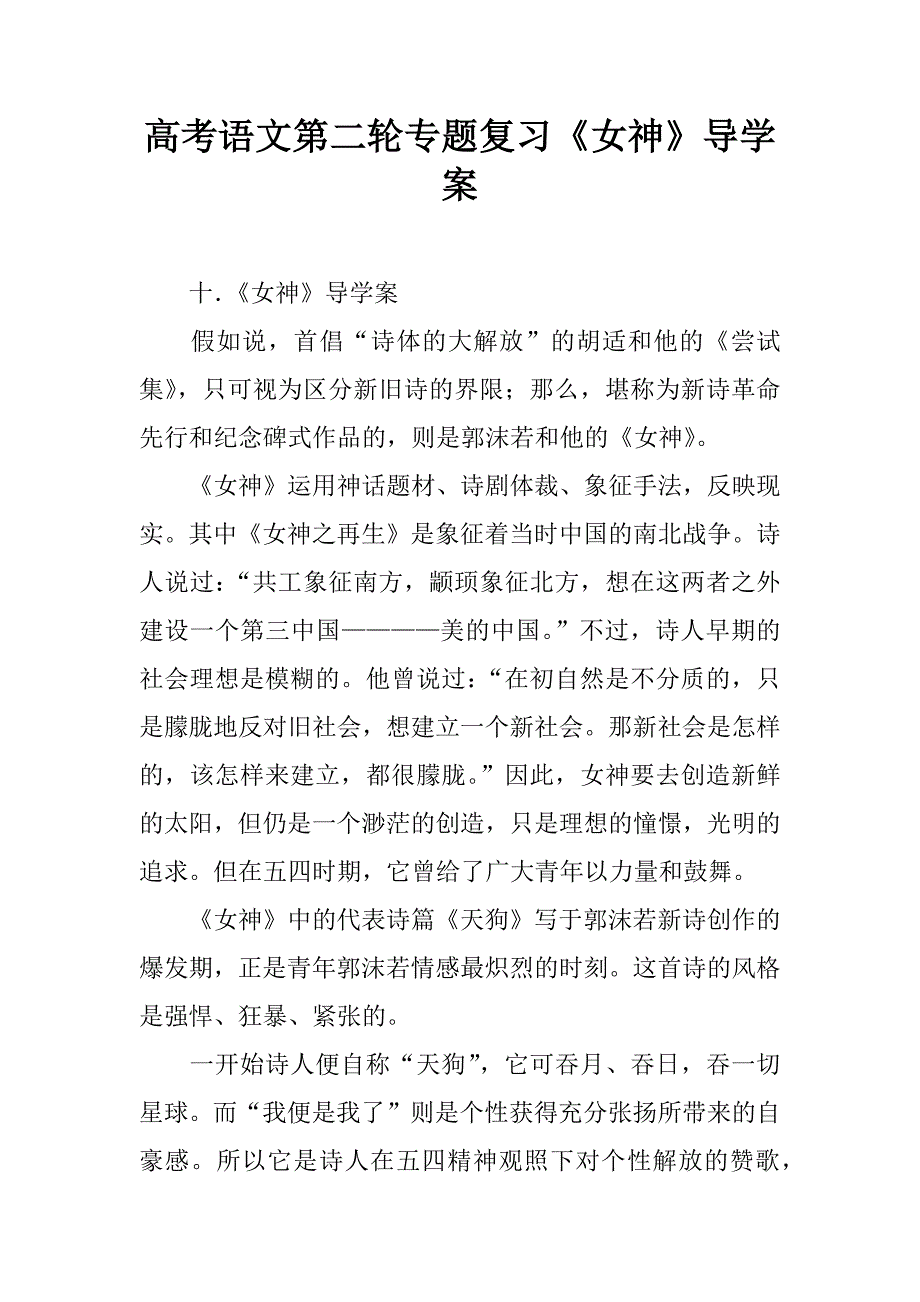 高考语文第二轮专题复习《女神》导学
案
十.《女神》导学案
假如说，首倡“诗体的大解放”的胡适和他的《尝试
集》，只可视为区分新旧诗的界限；那么，堪称为新诗革命
先行和纪念碑式作品的，则是郭沫若和他的《女神》。
《女神》运用神话题材、诗剧体裁、象征手法，反映现
实。其中《女神之再生》是象征着当时中国的南北战争。诗
人说过：“共工象征南方，颛顼象征北方，想在这两者之外
建设一个第三中国————美的中国。”不过，诗人早期的
社会理想是模糊的。他曾说过：“在初自然是不分质的，只
是朦胧地反对旧社会，想建立一个新社会。那新社会是怎样
的，该怎样来建立，都很朦胧。”因此，女神要去创造新鲜
的太阳，但仍是一个渺茫的创造，只是理想的憧憬，光明的
追求。但在五四时期，它曾给了广大青年以力量和鼓舞。
《女神》中的代表诗篇《天狗》写于郭沫若新诗创作的
爆发期，正是青年郭沫若情感最炽烈的时刻。这首诗的风格
是强悍、狂暴、紧张的。
一开始诗人便自称“天狗”，它可吞月、吞日，吞一切
星球。而“我便是我了”则是个性获得充分张扬所带来的自
豪感。所以它是诗人在五四精神观照下对个性解放的赞歌，